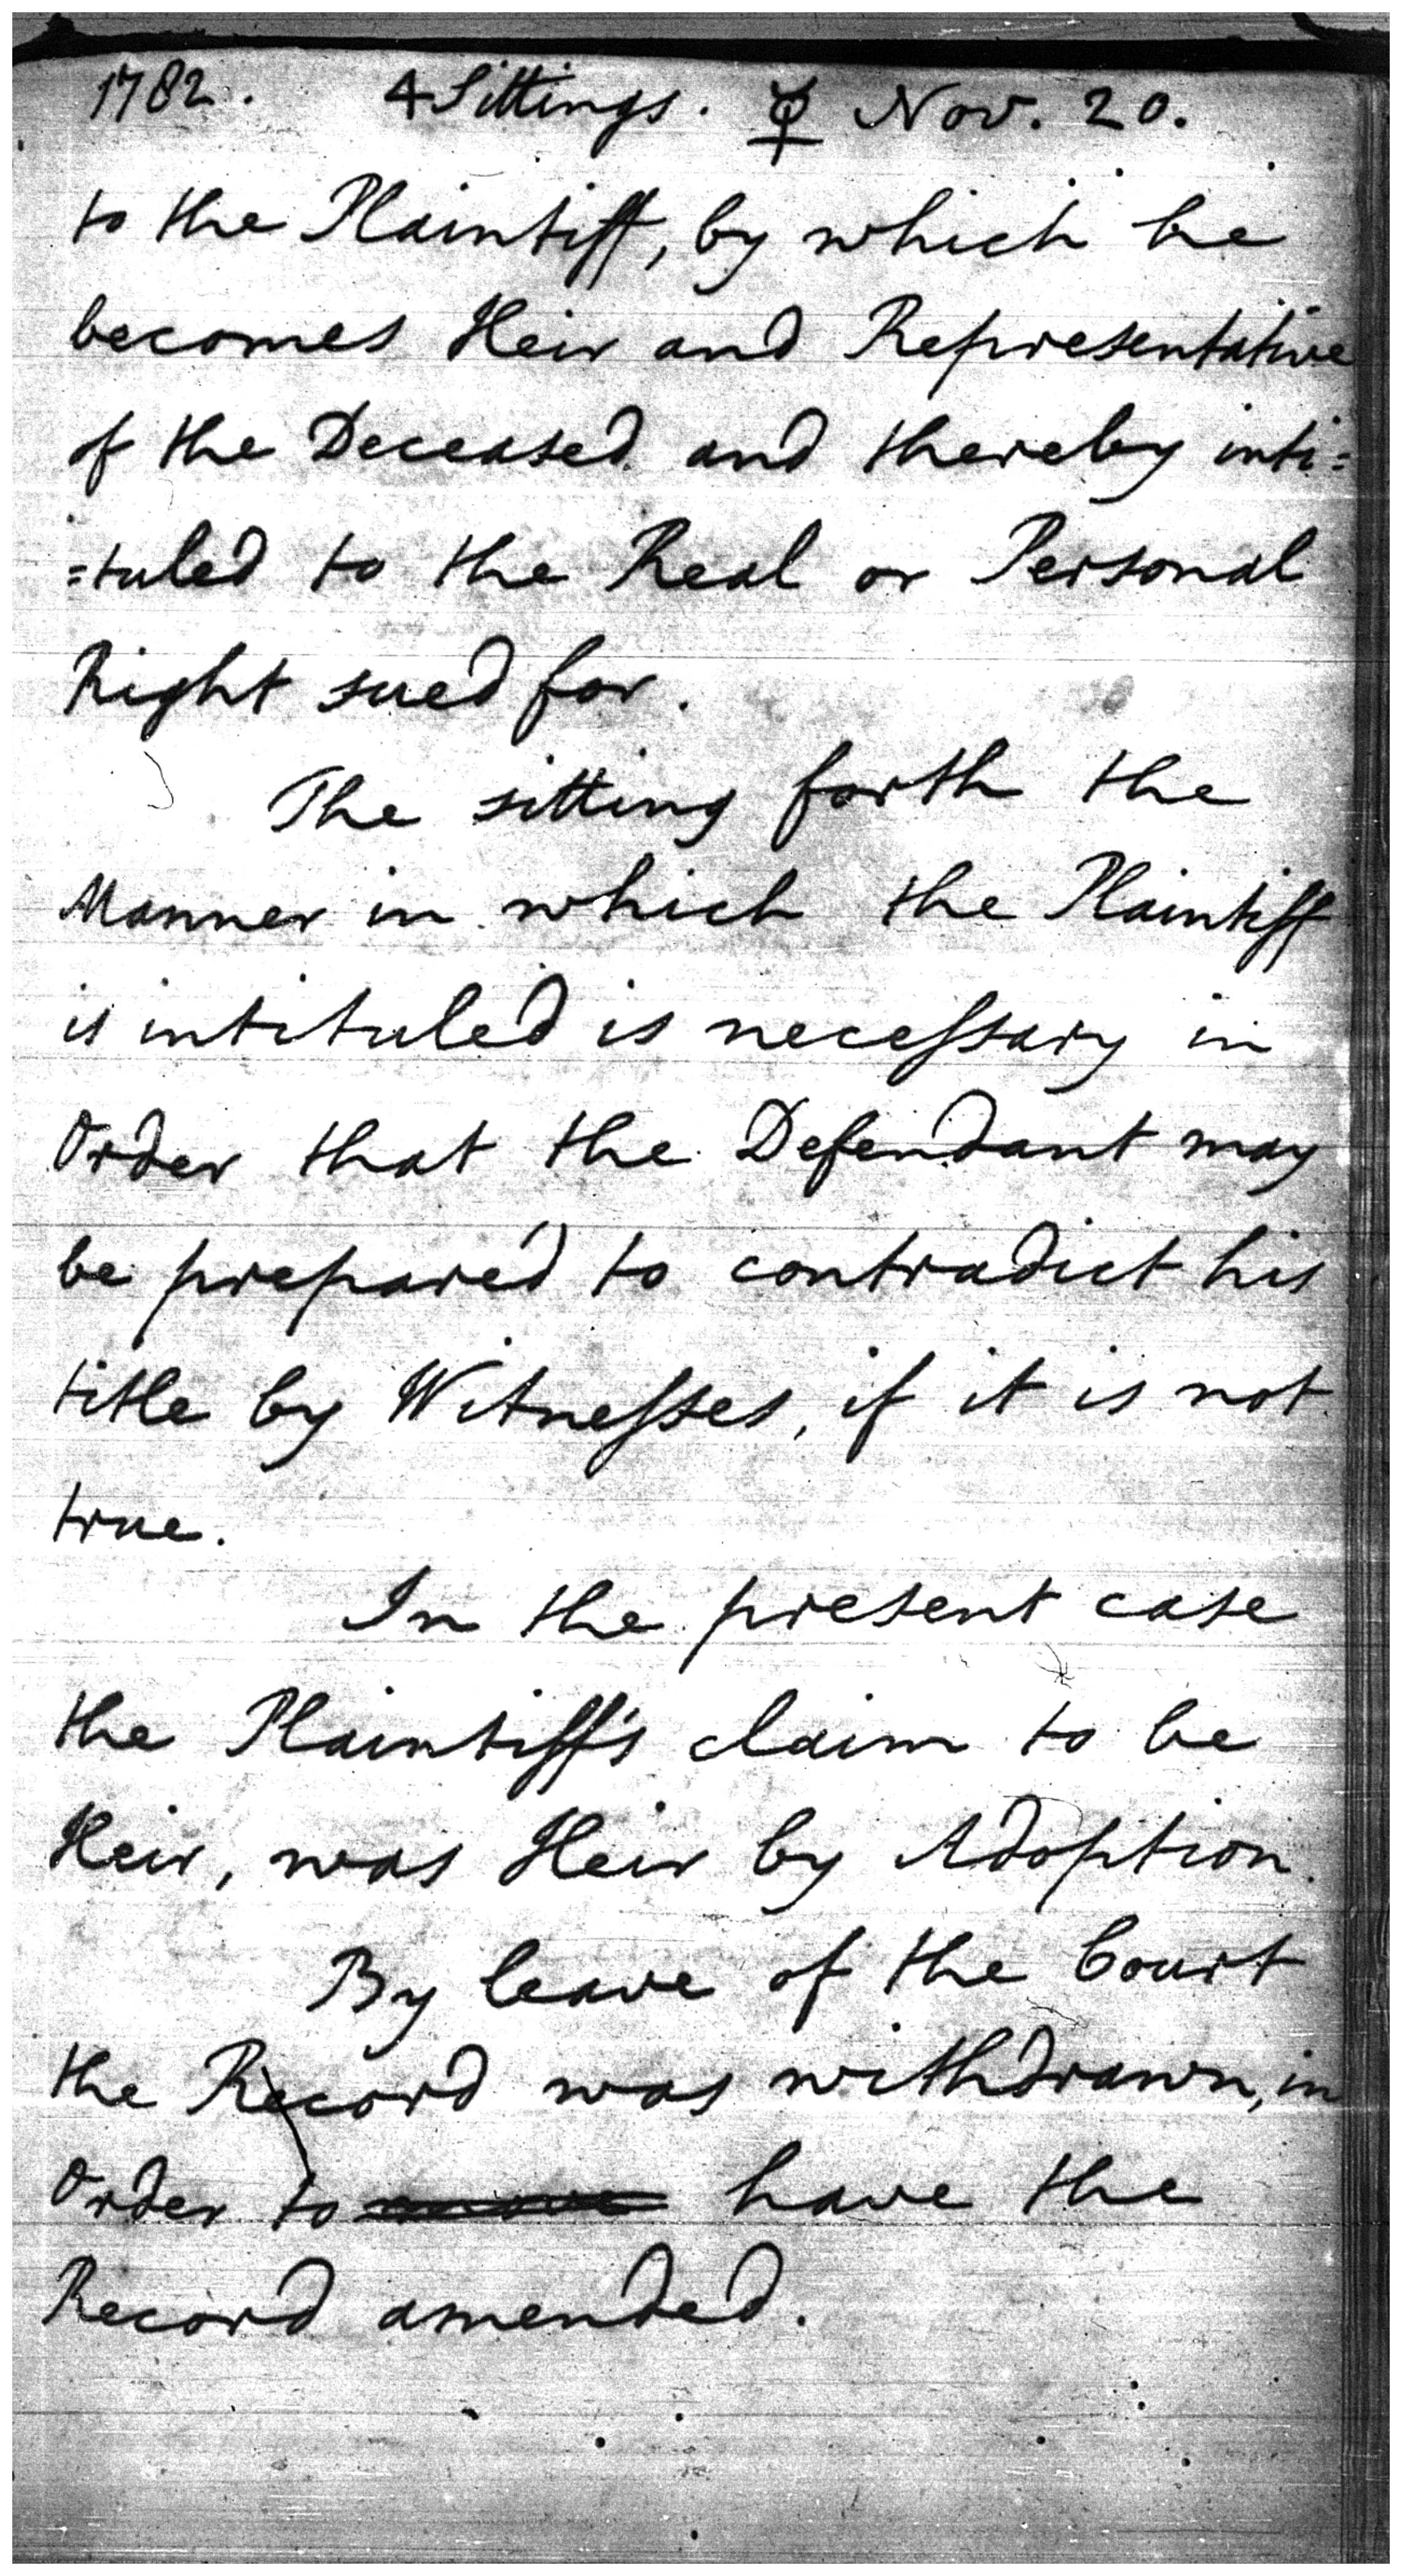 1782. 4 Sittings. ☿ Nov. 20.
to the Plaintiff, by which he
becomes Heir and Representative
of the Deceased and thereby inti=
=tuled to the Real or Personal
Right sued for.
The sitting forth the
Manner in which the Plaintiff
is intituled is necessary in
Order that the Defendant may
be prepared to contradict his
title by Witnesses, if it is not
true.
In the present case
the Plaintiff's claim to be
Heir, was Heir by Adoption.
By leave of the Court
the Record was withdrawn, in
Order to have the
Record amended.